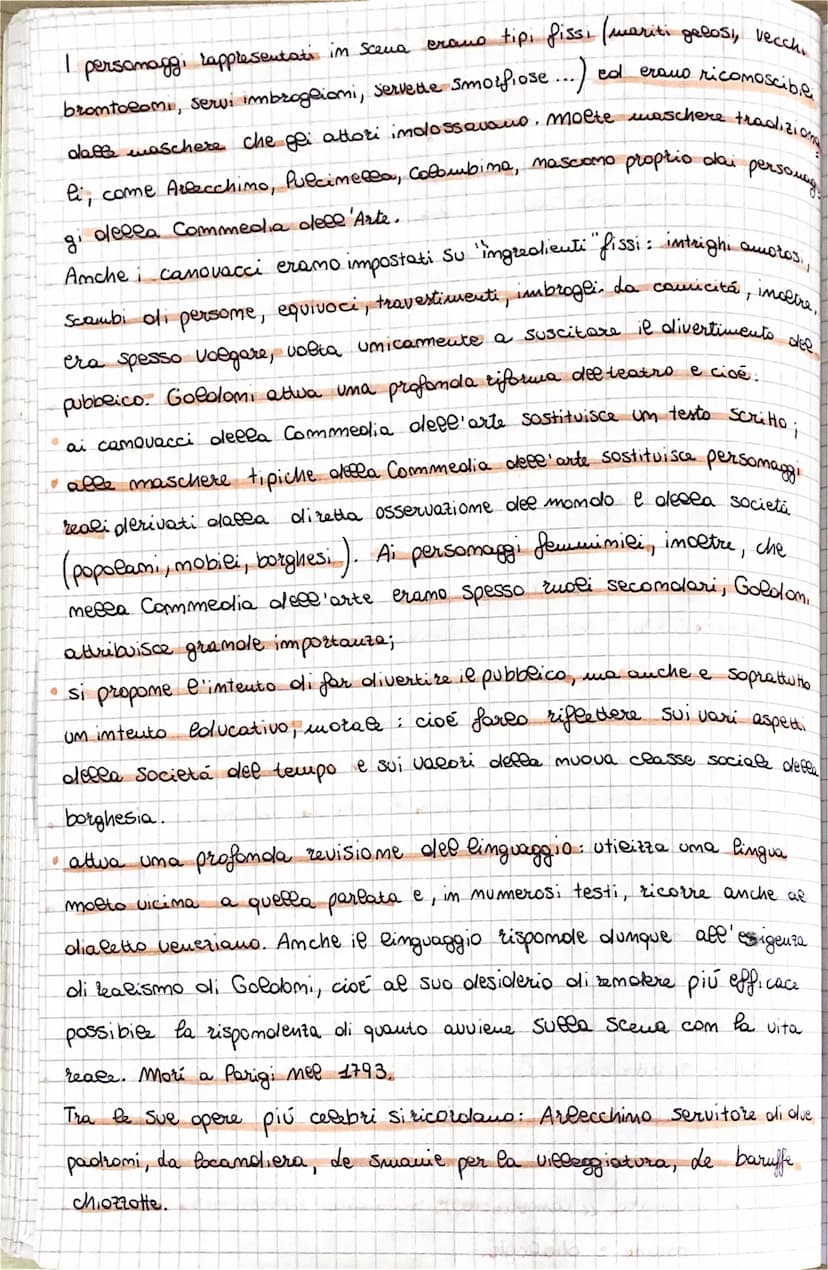 I personaggi rappresentati in scena erano tipi fissi (mariti gelosi, vecchi
brontoloni, servi imbroglioni, servette smorfiose ...) ed erano riconoscibili
dalle maschere che gli attori indossavano. Molte maschere tradiziona
li, come Arlecchino, Pulcinella, Colombina, nascono proprio dai personag
gi della Commedia dell'Arte.
Anche i canovacci erano impostati su "ingredienti" fissi: intrighi amorosi,
scambi di persone, equivoci, travestimenti, imbrogli. La comicitá, inoltre,
era spesso volgare, volta unicamente a suscitare il divertimento del
pubblico. Goldoni attua una profonda riforma del teatro e cioé:
• ai canovacci della Commedia dell'arte sostituisce un testo scritto;
• alle maschere tipiche della Commedia dell'arte sostituisce personaggi
reali derivati dalla diretta osservazione del mondo e della societá
(popolani, nobili, borghesi). Ai personaggi femminili, inoltre, che
nella Commedia dell'arte erano spesso ruoli secondari, Goldoni
attribuisce grande importanza;
• si propone l'intento di far divertire il pubblico, ma anche e soprattutto
un intento educativo, morale: cioé farlo riflettere sui vari aspetti
della societá del tempo e sui valori della nuova classe sociale della
borghesia.
• attua una profonda revisione del linguaggio: utilizza una lingua
molto vicina a quella parlata e, in numerosi testi, ricorre anche al
dialetto veneziano. Anche il linguaggio risponde dunque all'esigenza
di realismo di Goldoni, cioé al suo desiderio di rendere piú efficace
possibile la rispondenza di quanto avviene sulla scena con la vita
reale. Morí a Parigi nel 1793.
Tra le sue opere piú celebri si ricordano: Arlecchino servitore di due
padroni, La locandiera, Le smanie per la villeggiatura, Le baruffe
chiozzotte.